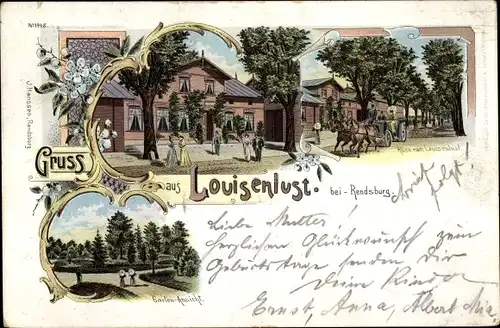 No 1948.
J. Haenssen, Rendsburg
Gruss
aus Louisenlust.
bei - Rendsburg.
Allee vom Louisenlust
Garten-Ansicht.
Brief folgt.
Liebe Mutter!
Herzlichen Glückwunsch zum
Geburtstage senden dir
Deine Kinder
Ernst, Anna, Albert Mia.